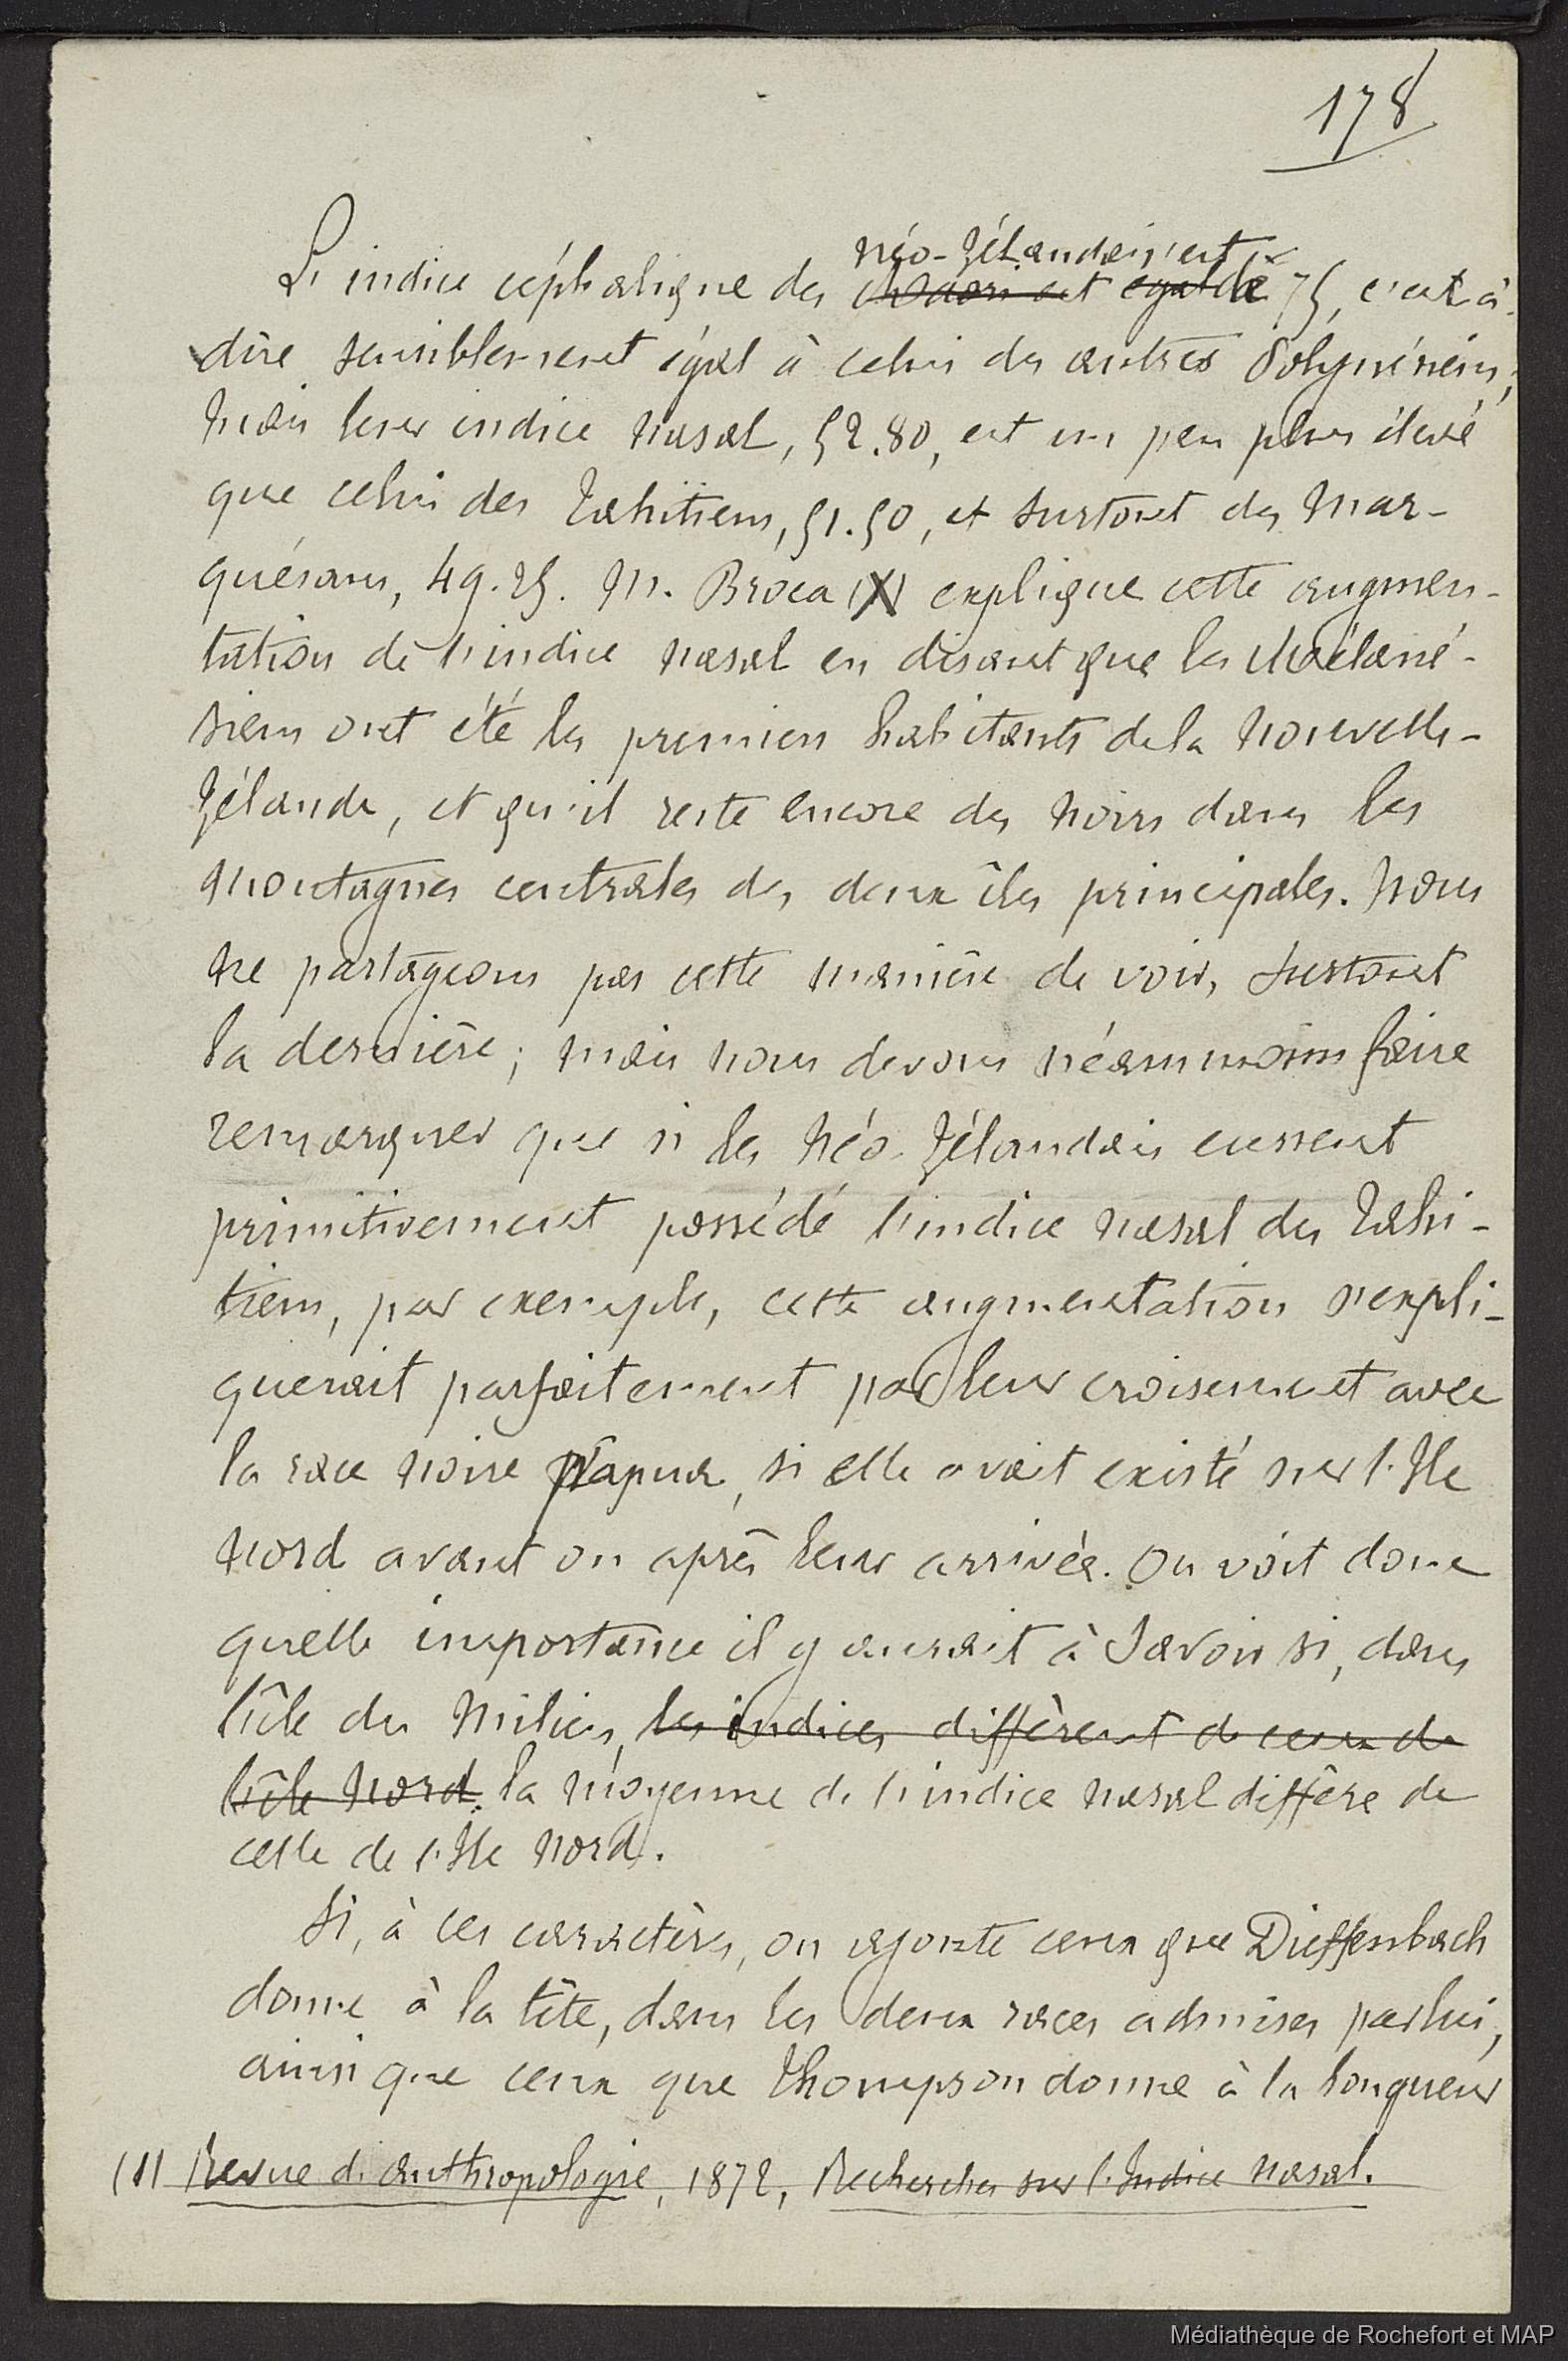 178
néo-zélandais est
L'indice céphalique des Maori est égal de 75, c'est à
dire sensiblement égal à celui des autres Polynésiens;
mais leur indice nasal, 52.80, est un peu plus élevé
que celui des Tahitiens, 51.50, et surtout des Mar-
quésans, 49.25. M. Broca (X) explique cette augmen-
tation de l'indice nasal en disant que les Mélané-
siens ont été les premiers habitants de la Nouvelle-
Zélande, et qu'il reste encore des noirs dans les
montagnes centrales des deux îles principales. Nous
ne partageons pas cette manière de voir, surtout
la dernière; mais nous devons néanmoins faire
remarquer que si les Néo-Zélandais eussent
primitivement possédé l'indice nasal des Tahi-
tiens, par exemple, cette augmentation s'expli-
querait parfaitement par leur croisement avec
la race noire Papua, si elle avait existé sur l'Ile
Nord avant ou après leur arrivée. On voit donc
quelle importance il y aurait à savoir si, dans
l'île du Milieu, les indices diffèrent de ceux de
l'île Nord. la moyenne de l'indice nasal diffère de
celle de l'Ile Nord.
Si, à ces caractères, on ajoute ceux que Dieffenbach
donne à la tête, dans les deux races admises par lui,
ainsi que ceux que Thompson donne à la longueur
(1) Revue d'anthropologie, 1872, Recherches sur l'Indice nasal.
Médiathèque de Rochefort et MAP